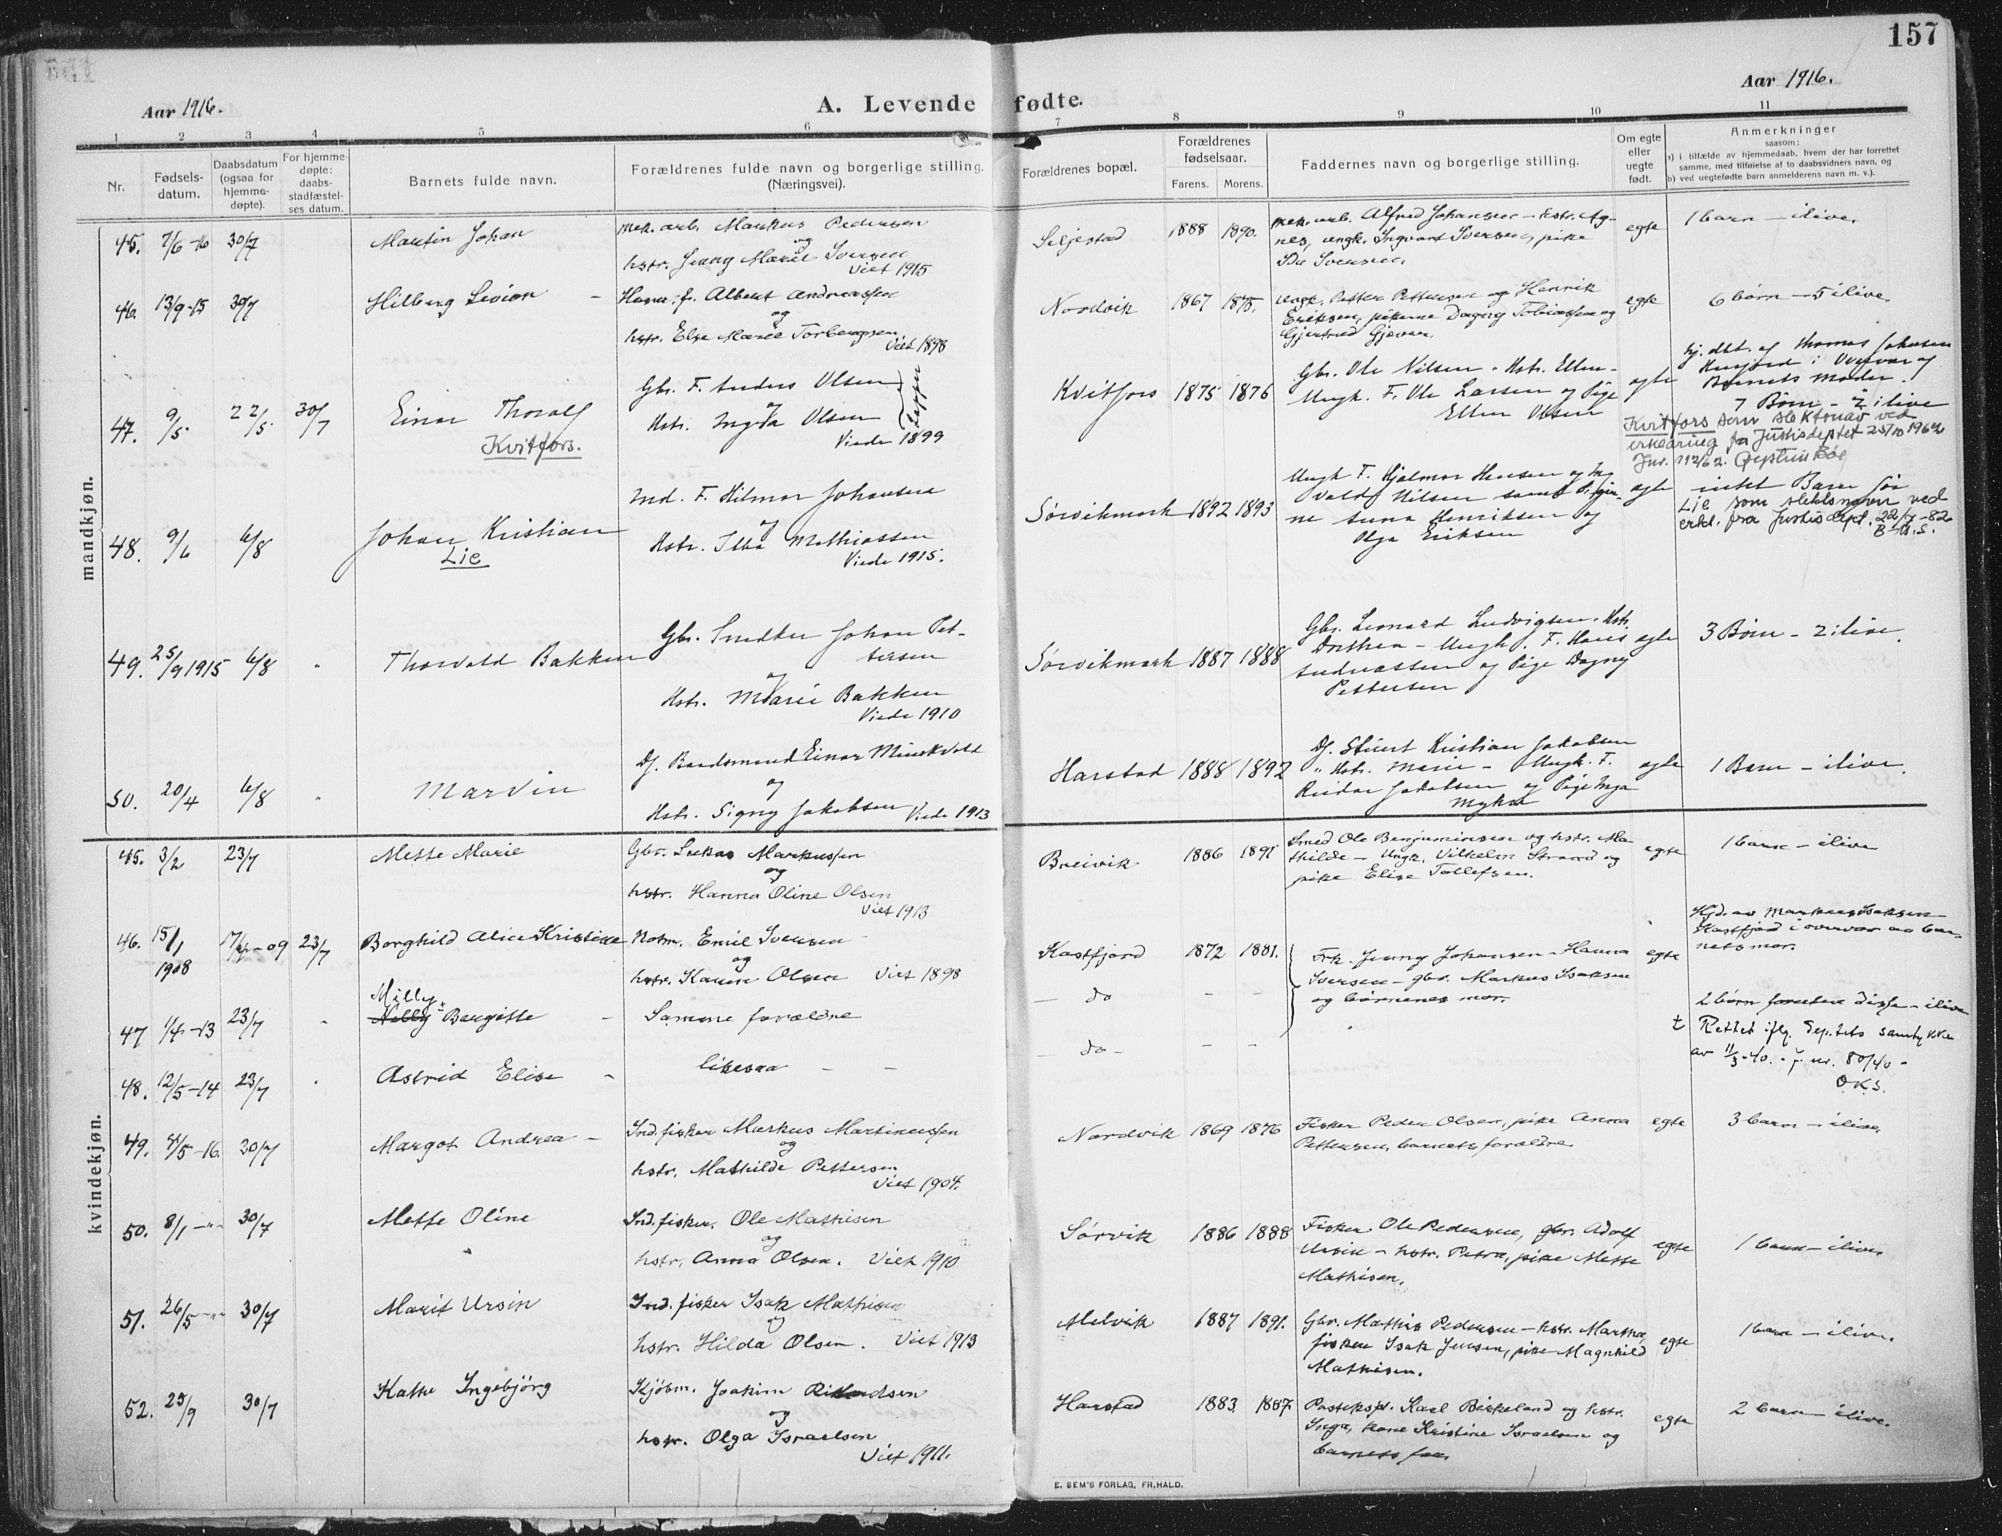 157
Aar 1916.
A. Levende fødte.
Aar 1916.
1 2 3 4 5 6 7 8 9 10 11
Nr.
Fødsels-
datum.
Daabsdatum
(ogsaa for
hjemme-
døpte).
For hjemme-
døpte:
daabs-
stadfæstel-
ses datum.
Barnets fulde navn.
Forældrenes fulde navn og borgerlige stilling.
(Næringsvei).
Forældrenes bopæl.
Forældrenes
fødselsaar.
Farens. Morens.
Faddernes navn og borgerlige stilling.
Om egte
eller
uegte
født.
Anmerkninger
saasom:
a) i tilfælde av hjemmedaab, hvem der har forrettet
samme, med tilføielse af to daabsvidners navn, og
b) ved uegtefødte barn anmelderens navn m. v.).
mandkjøn.
45. 7/6-16 30/7 Martin Johan
mek. arb. Markus Pedersen
og
hstr. Jenny Marie Iversen
Viet 1915
Seljestad 1888 1890.
mek. arb. Alfred Johansen - hstr. Ag-
nes, ungk. Ingvart Iversen, pike
Ida Iversen.
egte 1 barn - ilive.
46. 13/9-15 30/7 Hilberg Sevion -
Albert Andreassen
og
hstr. Else Marie Torbergsen
Viet 1898
Nordvik 1867 1875.
ungk. Petter Pettersen og Henrik
Eriksen, pikerne Dagny Tobiassen og
Gjertrud Gjæver.
egte 6 børn - 5 ilive.
47. 9/5 22/5 30/7 Einar Thoralf
Kvitfors.
Gbr. F. Anders Olsen
og
Hstr. Ingda Olsen
Viede 1899
Kvitfors 1875 1876
Gbr. Ole Nilsen - Hstr. Ellen -
Ungk. F. Ole Larsen og Pige
Ellen Olsen
egte
hj. dbt. af Thomas Johnsen
i Overvær af
Barnets Moder.
7 Børn - 2 ilive
Kvitfors som slektsnavn ved
erklæring fra Justisdeptet 25/10 1962
Jnr. 112/62.
48. 9/6 6/8 Johan Kristian
Lie
Ind. F. Hilmar Johansen
og
Hstr. Mathiassen
Viede 1915.
Sørvikmark 1892 1893
Ungk F. Hjalmar Hansen og
Nilsen samt Piger-
ne Anna Henriksen og
Olga Eriksen
egte intet Barn før
Lie som slektsnavn ved
erkl. fra Justisdept. 22/7-82
49. 25/9 1915 6/8 " Thorvald Bakken
Gbr. Smeden Johan Pet-
tersen
og
Hstr. Marie Bakken
Viede 1910
Sørvikmark 1887 1888
Gbr. Leonard Ludvigsen - Hstr.
Dorthea - Ungk. F. Hans
Andreassen og Pige Dagny
Pettersen
egte 3 Børn - 2 ilive.
50. 20/4 6/8 " Marvin
Df. Baadsmand Einar
og
Hstr. Signy Jakobsen Viede 1913
Harstad 1888 1892
Df. Stuert Kristian Jakobsen
" Hstr. Marie - Ungk. F.
Reidar Jakobsen og Pige Inga
egte 1 Barn - ilive.
kvindekjøn.
45. 3/2 23/7 Mette Marie
Gbr. Markussen
og
hstr. Hanna Oline Olsen
Viet 1913
Breivik 1886 1891
Smed Ole Benjaminsen og hstr. Ma-
thilde - Ungk. Vilhelm Strand og
pike Elise Tollefsen.
egte 1 barn - ilive
46. 15/1
1908 23/7 Borghild Alice Kristine
Emil Iversen
og
hstr. Karen Olsen Viet 1898
Kastfjord 1872 1881.
Frk. Jenny Johansen - Hanna
Iversen - gbr. Markus Isaksen
og børnenes mor.
egte
Hjd. av Markus Isaksen
Kastfjord i overvær av bar-
nets mor.
47 1/4-13 23/7 " Milly +
Nelly Bergitte -
Samme forældre
- do - -
2 børn foruten disse - ilive
t Rettet iflg. Deptets samtykke
av 11/3-40. - j. nr. 80/40 -
O.K.S.
48. 12/5-14 23/7 " Astrid Elise -
likesaa - -
- do -
49. 4/5-16 30/7 Margot Andrea -
Ind. fisker Markus Martinussen
og
hstr. Mathilde Pettersen
Viet 1904.
Nordvik 1869 1876
Fisker Peder Olsen, pike Anna
Pettersen, barnets forældre.
egte 3 barn - ilive.
50. 8/1 - " - 30/7 Mette Oline
Ind. fisker, Ole Mathisen
og
hstr. Anna Olsen. Viet 1910
Sørvik 1886 1888
Fisker Ole Pedersen, gbr. Adolf
Ursin - hstr. Petra, pike Mette
Mathisen.
egte 1 barn - ilive.
51. 26/5 - " - 30/7 Marit Ursin
Ind. fisker Isak Mathisen
og
hstr. Hilda Olsen. Viet 1913
Melvik 1887 1891.
Gbr. Mathis Pedersen - hstr. Martha,
fisker Isak Jensen, pike Magnhild
Mathisen.
egte 1 barn - ilive.
52. 25/9 30/7 Kathe Ingebjørg
Kjøbm. Joakim Rikardsen
og
hstr. Olga Israelsen
Viet 1911.
Harstad 1883 1887.
Karl Birkeland og hstr.
Inga, kone Kristine Israelsen og
barnets far.
egte 2 barn - ilive.
E. SEM'S FORLAG, FR.HALD.